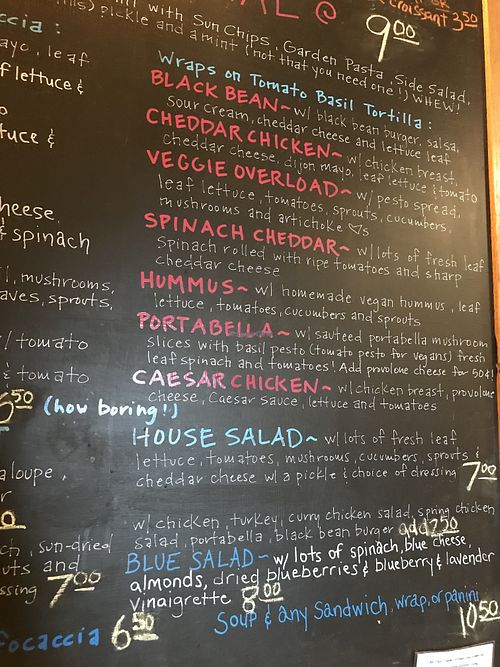 AL @
Croissant 3.50
w/ith Sun Chips, Garden Pasta, Side Salad,
9.00
pickle and a mint (not that you need one!) WHEW!
ccia:
ayo, leaf
f lettuce &
tuce &
heese,
& spinach
mushrooms,
aves, sprouts,
/ tomato
& tomato
6.50 (how boring!)
aloupe,
r
ch, sun-dried
uts and
ssing 7.00
focaccia 6.50
Wraps on Tomato Basil Tortilla:
BLACK BEAN~ w/ black bean burger, salsa,
sour cream, cheddar cheese and lettuce leaf
CHEDDAR CHICKEN~ w/ chicken breast,
cheddar cheese, dijon mayo, leaf lettuce & tomato
VEGGIE OVERLOAD~ w/ pesto spread,
leaf lettuce, tomatoes, sprouts, cucumbers,
mushrooms and artichoke ♡s
SPINACH CHEDDAR~ w/ lots of fresh leaf
spinach rolled with ripe tomatoes and sharp
cheddar cheese
HUMMUS~ w/ homemade vegan hummus, leaf
lettuce, tomatoes, cucumbers and sprouts
PORTABELLA~ w/ sauteed portabella mushroom
slices with basil pesto (tomato pesto for vegans) fresh
leaf spinach and tomatoes! Add provolone cheese for 50¢!
CAESAR CHICKEN~ w/ chicken breast, provolone
cheese, Caesar sauce, lettuce and tomatoes
HOUSE SALAD~ w/ lots of fresh leaf
lettuce, tomatoes, mushrooms, cucumbers, sprouts &
cheddar cheese w/ a pickle & choice of dressing 7.00
w/ chicken, turkey, curry chicken salad, spring chicken
salad, portabella, black bean burger add 2.50
BLUE SALAD~ w/ lots of spinach, blue cheese,
almonds, dried blueberries & blueberry & lavender
vinaigrette 8.00
Soup & any Sandwich, wrap, or panini
10.50